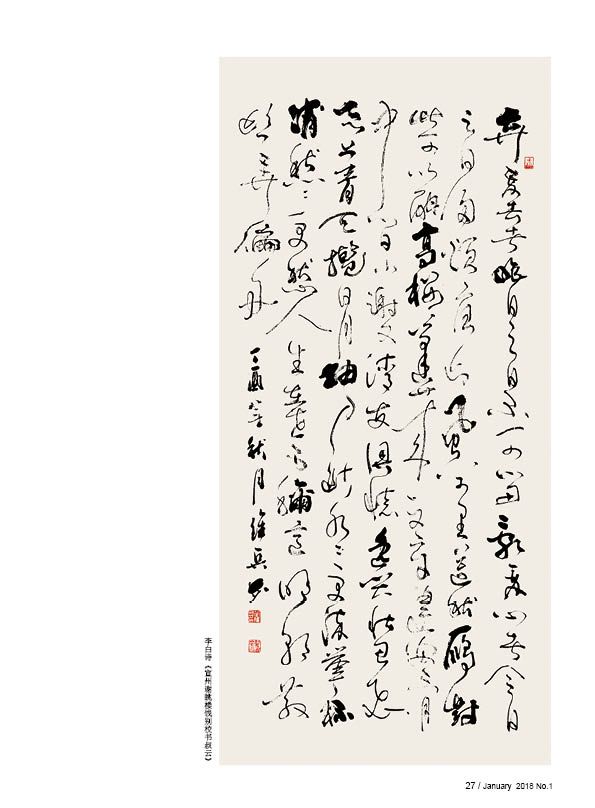 弃我去者昨日之日不可留亂我心者今日
之日多煩憂長風万里送秋雁對
此可以酣高樓蓬萊文章建安骨
中間小謝又清發俱懷逸興壯思飛
欲上青天攬日月抽刀斷水水更流舉杯
消愁愁更愁人生在世不稱意明朝散
髮弄扁舟
丁酉 秋月維兵
李白诗《宣州谢朓楼饯别校书叔云》
27 / January 2018 No.1